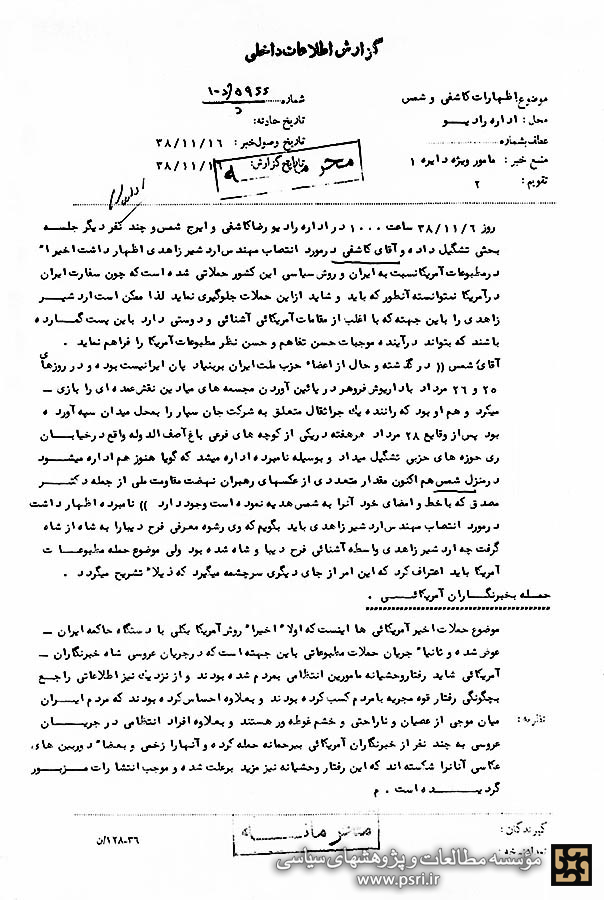 گزارش اطلاعات داخلی
موضوع: اظهارات کاشفی و شمس
شماره
محل: اداره رادیو
تاریخ حادثه:
عطف بشماره
تاریخ وصول خبر: ۳۸/۱۱/۱۶
منبع خبر: مامور ویژه دایره ۱
تاریخ گزارش: ۳۸/۱۱/۱
محرمانه
تقویم: ۲
روز ۳۸/۱۱/۶ ساعت ۱۰۰۰ در اداره رادیو رضا کاشفی و ایرج شمس و چند نفر دیگر جلسه
بحثی تشکیل داده و آقای کاشفی در مورد انتصاب مهندس ارد شیر زاهدی اظهار داشت اخیرا"
در مطبوعات آمریکا نسبت به ایران و روش سیاسی این کشور حملاتی شده است که چون سفارت ایران
در آمریکا نتوانسته آنطور که باید و شاید از این حملات جلوگیری نماید لذا ممکن است ارد شیر
زاهدی را باین جهته که با اغلب از مقامات آمریکائی آشنائی و دوستی دارد باین پست گمارده
باشند که بتواند در آینده موجبات حسن تفاهم و حسن نظر مطبوعات آمریکا را فراهم نماید .
آقای شمس (( در گذشته و حال از اعضا" حزب ملت ایران بر بنیاد پان ایرانیست بوده و در روزهای
۲۵ و ۲۶ مرداد با داریوش فروهر در پائین آوردن مجسمه های میادین نقش عمده ای را بازی -
میکرد و هم او بود که راننده یک جراثقال متعلق به شرکت جان سپار را بمحل میدان سپه آورده
بود پس از وقایع ۲۸ مرداد هر هفته در یکی از کوچه های فرعی باغ آصف الدوله واقع در خیابان
ری حوزه های حزبی تشکیل میداد و بوسیله نامبرده اداره میشد که گویا هنوز هم اداره میشود
در منزل شمس هم اکنون مقدار متعددی از عکسهای رهبران نهضت مقاومت ملی از جمله دکتر
مصدق که با خط و امضای خود آنرا به شمس هدیه نموده است وجود دارد )) نامبرده اظهار داشت
در مورد انتصاب مهندس ارد شیر زاهدی باید بگویم که وی رشوه معرفی فرح دیبا را به شاه از شاه
گرفت چه ارد شیر زاهدی واسطه آشنائی فرح دیبا و شاه شده بود ولی موضوع حمله مطبوعات
آمریکا باید اعتراف کرد که این امر از جای دیگری سرچشمه میگیرد که ذیلا" تشریح میگردد .
حمله بخبرنگاران آمریکائی .
موضوع حملات اخیر آمریکائی ها اینست که اولا" اخیرا" روش آمریکا بکلی با دستگاه حاکمه ایران -
عوض شده و ثانیا" جریان حملات مطبوعاتی باین جهته است که در جریان عروسی شاه خبرنگاران -
آمریکائی شاید رفتار وحشیانه مامورین انتظامی بمردم شده بودند و از نزدیک نیز اطلاعاتی راجع
بچگونگی رفتار قوه مجریه با مردم کسب کرده بودند و بعلاوه احساس کرده بودند که مردم ایران
میان موجی از عصیان و ناراحتی و خشم غوطه ور هستند و بعلاوه افراد انتظامی در جریان
نظریه:
عروسی به چند نفر از خبرنگاران آمریکائی بیرحمانه حمله کرده و آنها را زخمی و بعضا" دوربین های
عکاسی آنانرا شکسته اند که این رفتار وحشیانه نیز مزید بر علت شده و موجب انتشارات مزبور
گردیده است . م
گیرندگان:
محرمانه
۱۲۸-۳۶/ن
موسسه مطالعات و پژوهشهای سیاسی
www.psri.ir